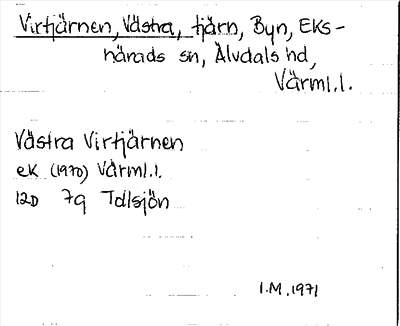 Virtjärnen, Västra, tjärn, Byn, Eks-
härads sn, Älvdals hd,
Värml.l.
Västra Virtjärnen
ek (1970) Värml.l.
12D 7g Tdlsjön
I.M. 1971